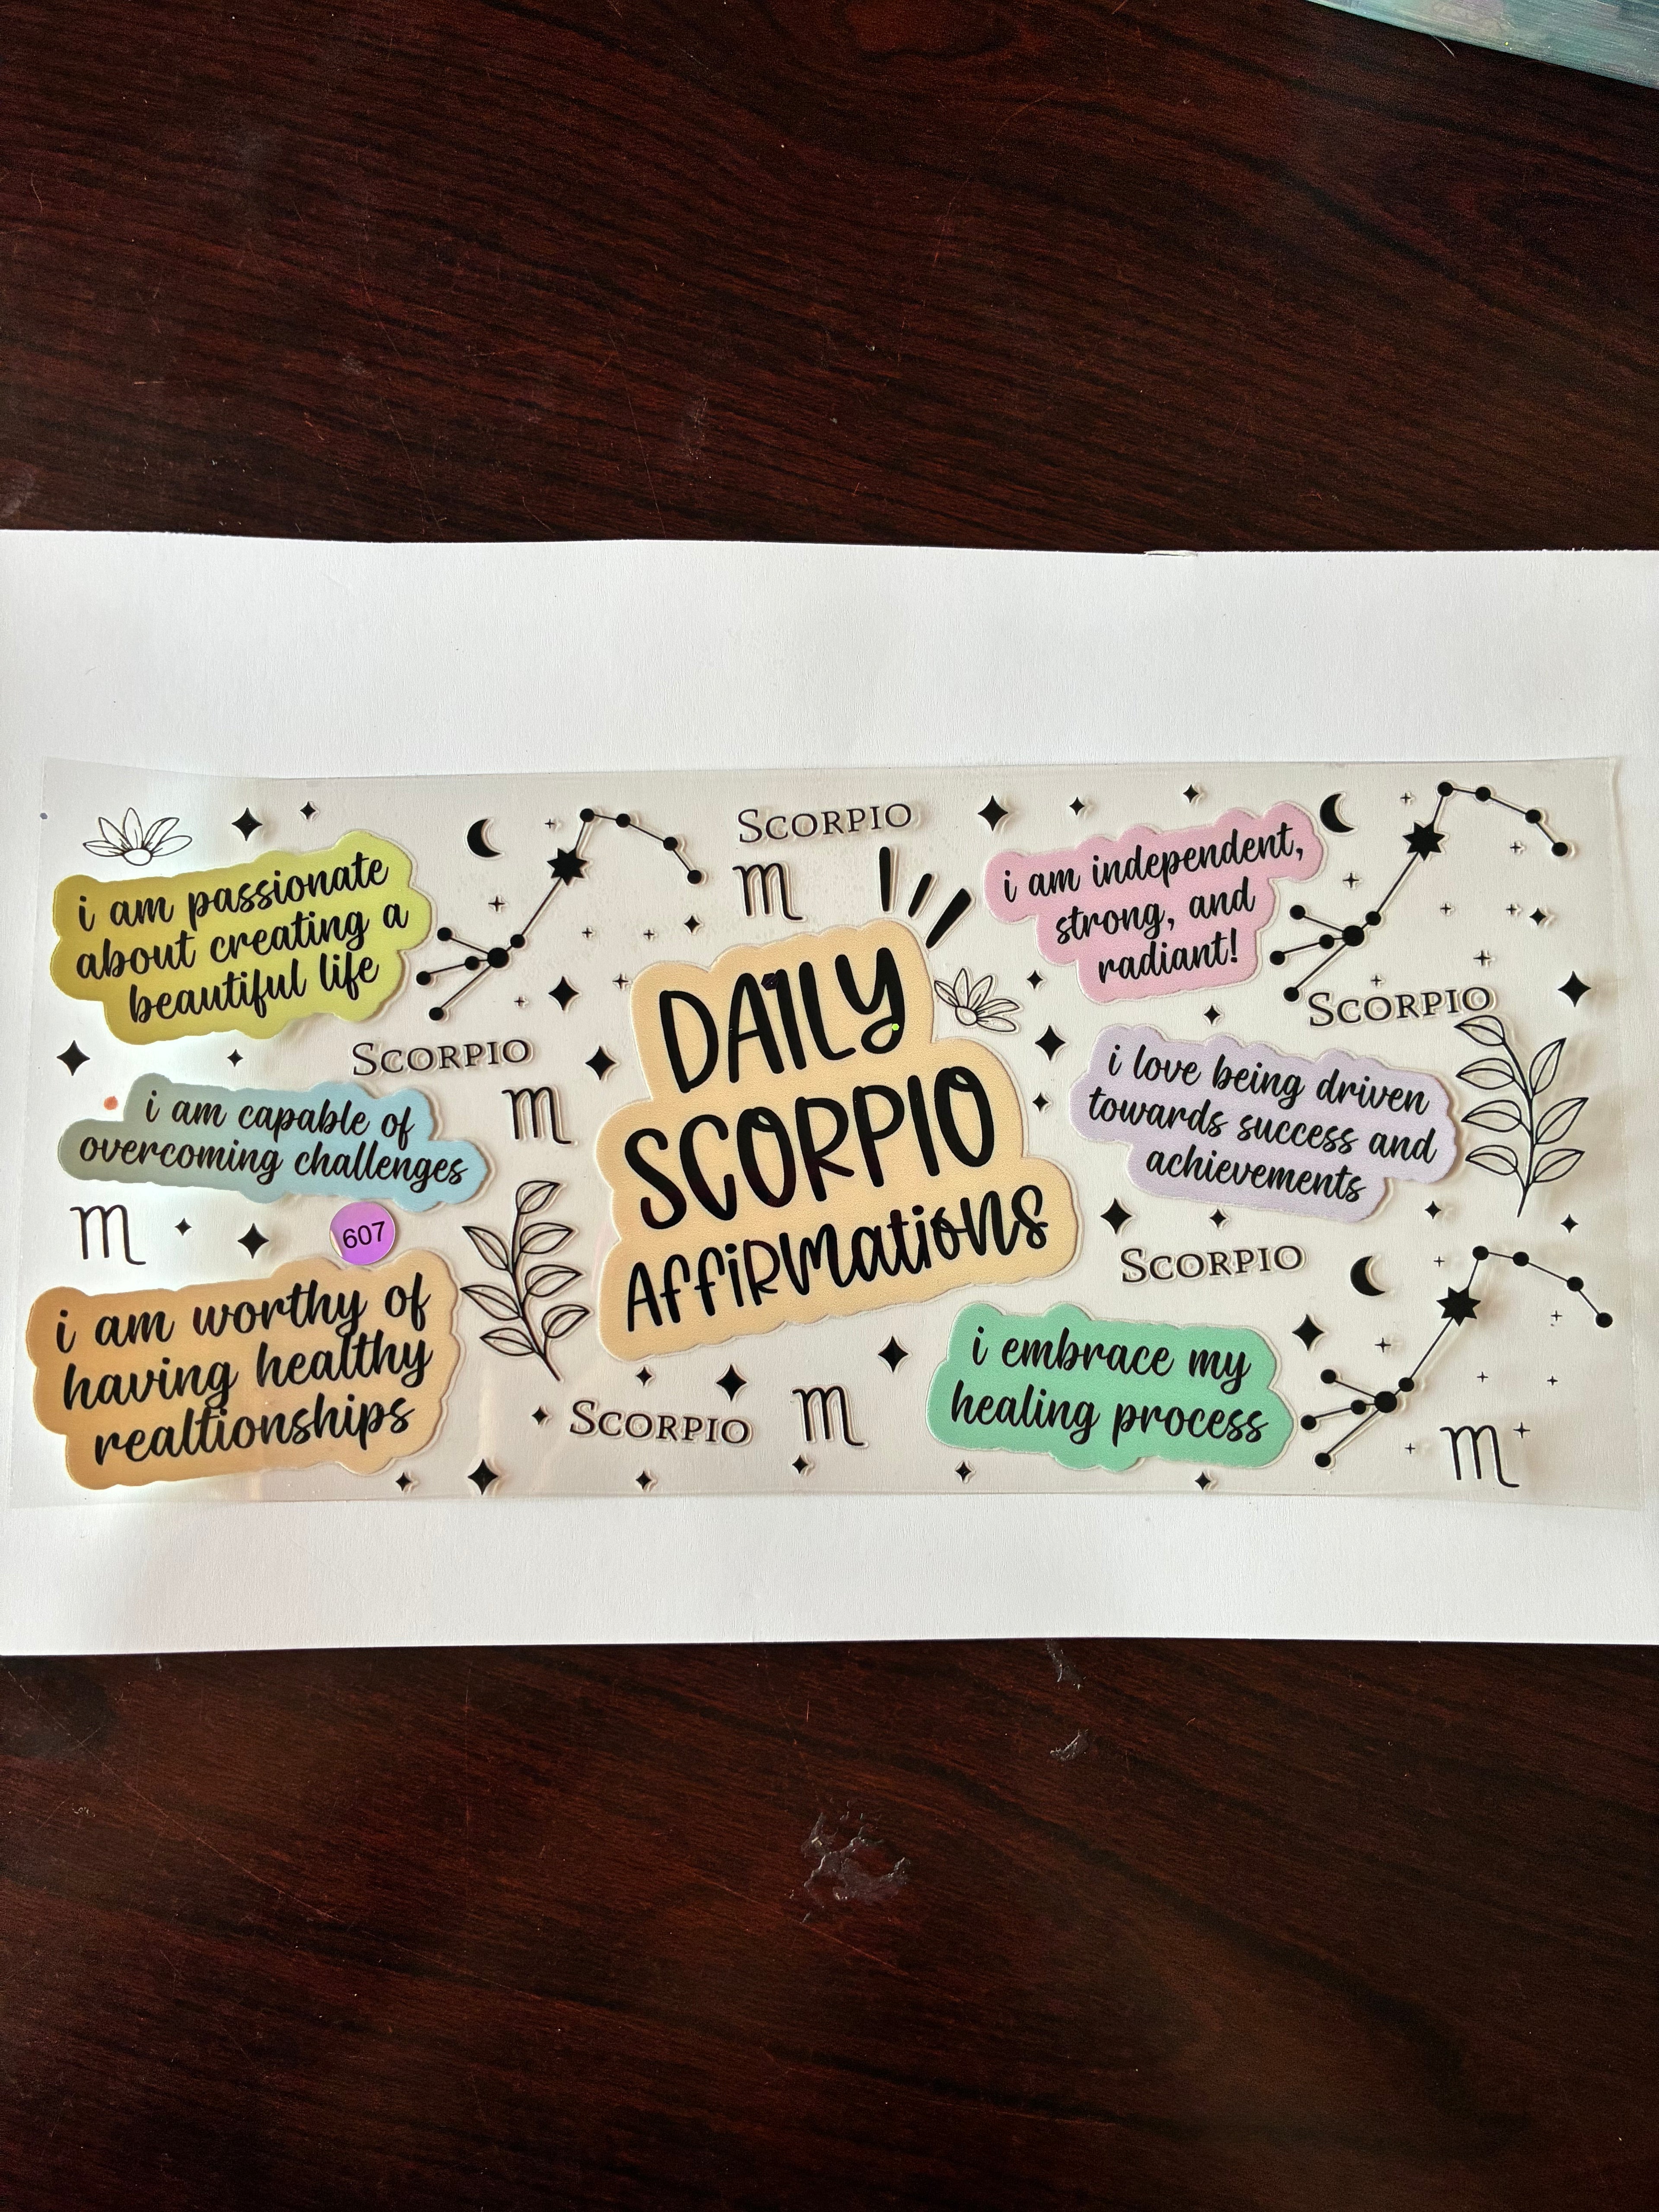 SCORPIO
i am passionate
about creating a
beautiful life
i am independent,
strong, and
radiant!
SCORPIO
SCORPIO
DAILY
SCORPIO
AFFiRMatioNS
i am capable of
overcoming challenges
i love being driven
towards success and
achievements
607
SCORPIO
i am worthy of
having healthy
realtionships
i embrace my
healing process
SCORPIO